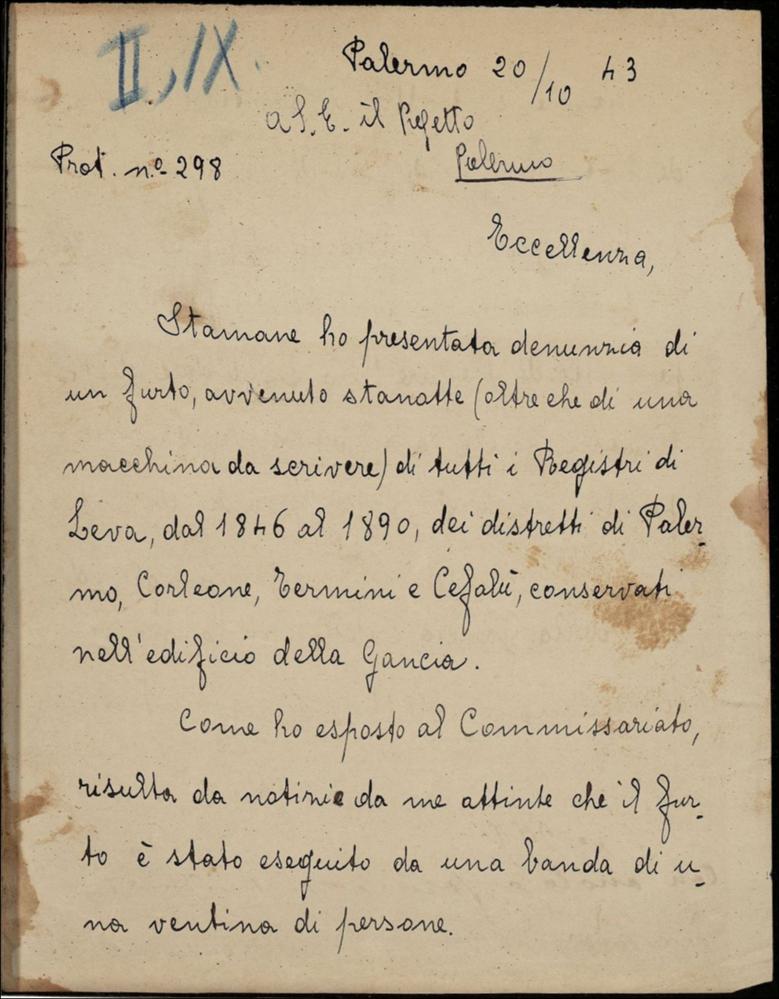 II, IX.
Palermo 20/10 43
a S. E. il Prefetto
Palermo
Prot. nº 298
Eccellenza,
Stamane ho presentata denunzia di
un furto, avvenuto stanotte (oltre che di una
macchina da scrivere) di tutti i Registri di
Leva, dal 1846 al 1890, dei distretti di Paler-
mo, Corleone, Termini e Cefalù, conservati
nell'edificio della Gancia.
Come ho esposto al Commissariato,
risulta da notizie da me attinte che il fur-
to è stato eseguito da una banda di u-
na ventina di persone.